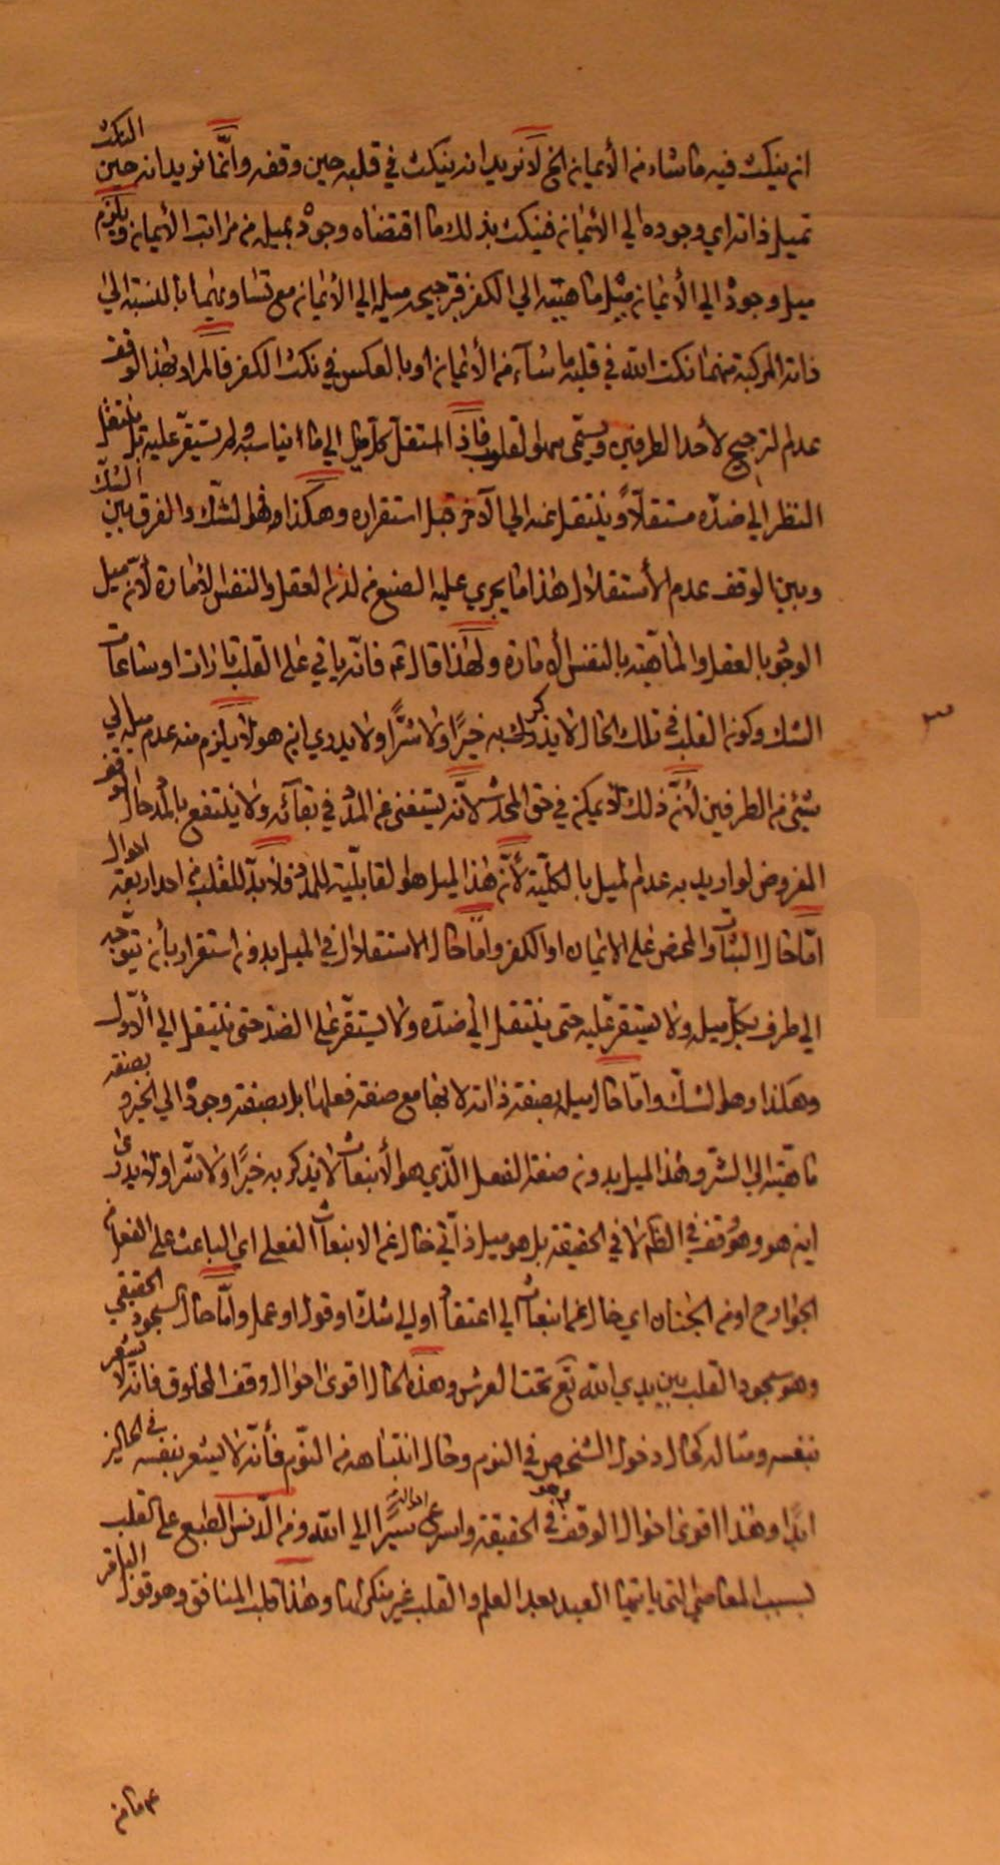 ان ينكث فيه ما شاء من الأيمان الخ لا نريد انه ينكت في قلبه حين وقفه وانّما نريد انه حين النكت
تميل ذاته اي وجوده الي الأيمان فينكت بذلك ما اقتضاه وجوده بميله من مراتب الأيمان ويلزم
ميل وجوده الي الأيمان ميل ماهيته الي الكفر فترجيحه ميله الي الأيمان مع تساويهما بالنسبة الي
ذاته المركبة منهما نكت الله في قلبه ما شآء من الأيمان او بالعكس في نكت الكفر فالمراد بهذا الوقف
عدم الترجيح لأحد الطرفين ويسمّى فاذا استقل كل ميل الي ما يناسبه ولم يستقرّ عليه بل ينتقل
النظر الي ضدّه مستقلاً وينتقل عنه الي الآخر قبل استقراره وهكذا فهو الشكّ والفرق بين الشكّ
وبين الوقف عدم الأستقلال هذا ما يجري عليه الصنع من لدن العقل والنفس الأمارة لأنه يميل
الوجود بالعقل والماهية بالنفس الأمارة ولهذا قال ع فانّه ياتي على القلب تارات او ساعات
الشك وكون القلب في تلك الحال لا يذكر به خيرًا ولا شرًّا ولا يدري اين هو لا يلزم منه عدم ميله الي
شيئ من الطرفين لأنّ ذلك لا يمكن في حق المحدث لأنّه يستغني عن المدد في بقآئه ولا ينتفع بالمدد حال الوقف
المفروض لو اريد به عدم الميل بالكلّية لأنّ هذا الميل هو القابلية للمدد فلا بدّ للقلب من احد اربعة احوال
امّا حال الثبات والمحض على الايمان او الكفر وامّا حال الاستقلال في الميل بدون استقرار بأن يتوجه
الي طرف بكلّ ميله ولا يستقرّ عليه حتى ينتقل الي ضدّه ولا يستقرّ على الضدّ حتى ينتقل الي الأوّل
وهكذا وهو الشك وامّا حال ميله بصفة ذاته لا بها مع صفة فعلها بل بصفة وجوده الي الخير و بصفة
ماهيّته الي الشر وهذا الميل بدون صفة الفعل الّذي هو الأنبعاث لا يذكر به خيرًا ولا شرا ولا يدري
اين هو وهو وقف في الظاهر لا في الحقيقة بل هو ميل ذاتي خال عن الانبعاث الفعلي اي الباعث على الفعل من
الجوارح او من الجنان اي خال عن انبعاث الي اعتقاد او الي شكّ او قول او عمل وامّا حال السجود الحقيقي
وهو سجود القلب بين يدي الله تع تحت العرش وهذه الحال اقوى احوال وقف المخلوق فانه لا يشعر
بنفسه ومثاله كحال دخول الشخص في النوم وحال انتباهه من النوم فأنّه لا يشعر بنفسه في الحالين
ابدًا وهذا اقوى احوال الوقف في الحقيقة واسرع سيرًا الي الله ومن الدنس الطبع على القلب
بسبب المعاصي التي ياتيها العبد بعد العلم والقلب غير منكر لها وهذا قلب المنافق وهو قول الباقر